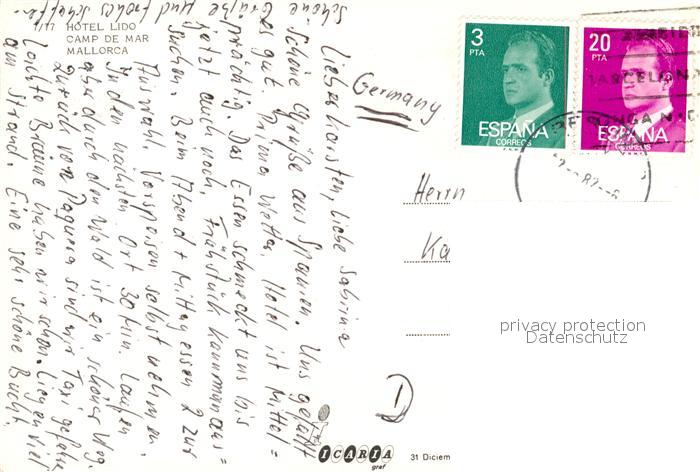 1/17 HOTEL LIDO
CAMP DE MAR
MALLORCA
Germany
3
PTA
ESPAÑA
CORREOS
20
PTA
ESPAÑA
CORREOS
Herrn
Ka
privacy protection
Datenschutz
D
ICARIA
graf
31 Diciem
Lieber Karsten, liebe Sabrina
schöne Grüße aus Spanien. Uns gefällt
es gut. Prima Wetter, Hotel ist Mittel=
prächtig. Das Essen schmeckt uns bis
jetzt auch noch. Frühstück kann man aus=
suchen. Beim Abend + Mittagessen 2 zur
Auswahl. Vorspeisen selbst nehmen.
In den nächsten Ort 30 Min. laufen
aber durch den Wald ist ein schöner Weg.
Zurück von Paguera sind wir Taxi gefahren
leichte Bräune haben wir schon. Liegen viel
am Strand. Eine sehr schöne Bucht.
Schöne Grüße und frohes schaffen